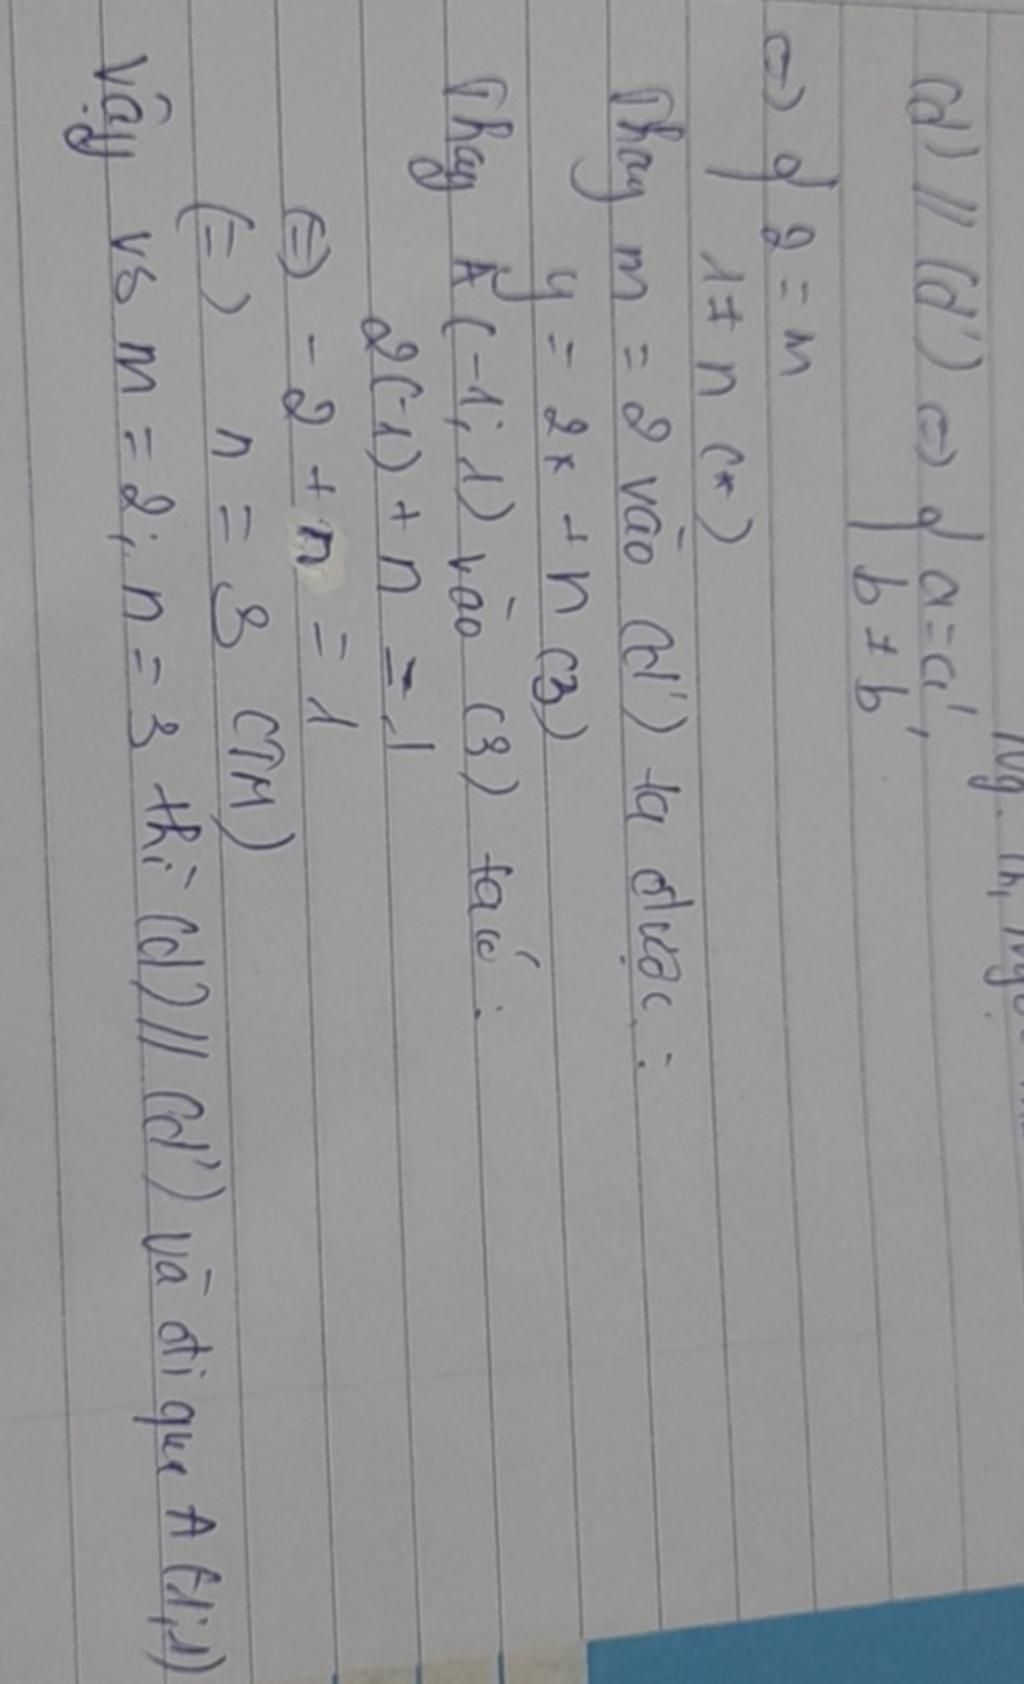 (d) // (d') <=> { a = a'
b ≠ b'
<=> { 2 = m
1 ≠ n (*)
Thay m = 2 vào (d') ta được :
y = 2x + n (3)
Thay A (-1; 1) vào (3) ta có :
2(-1) + n = 1
<=> -2 + n = 1
<=> n = 3 (TM)
Vậy vs m = 2; n = 3 thì (d) // (d') và đi qua A (-1; 1)